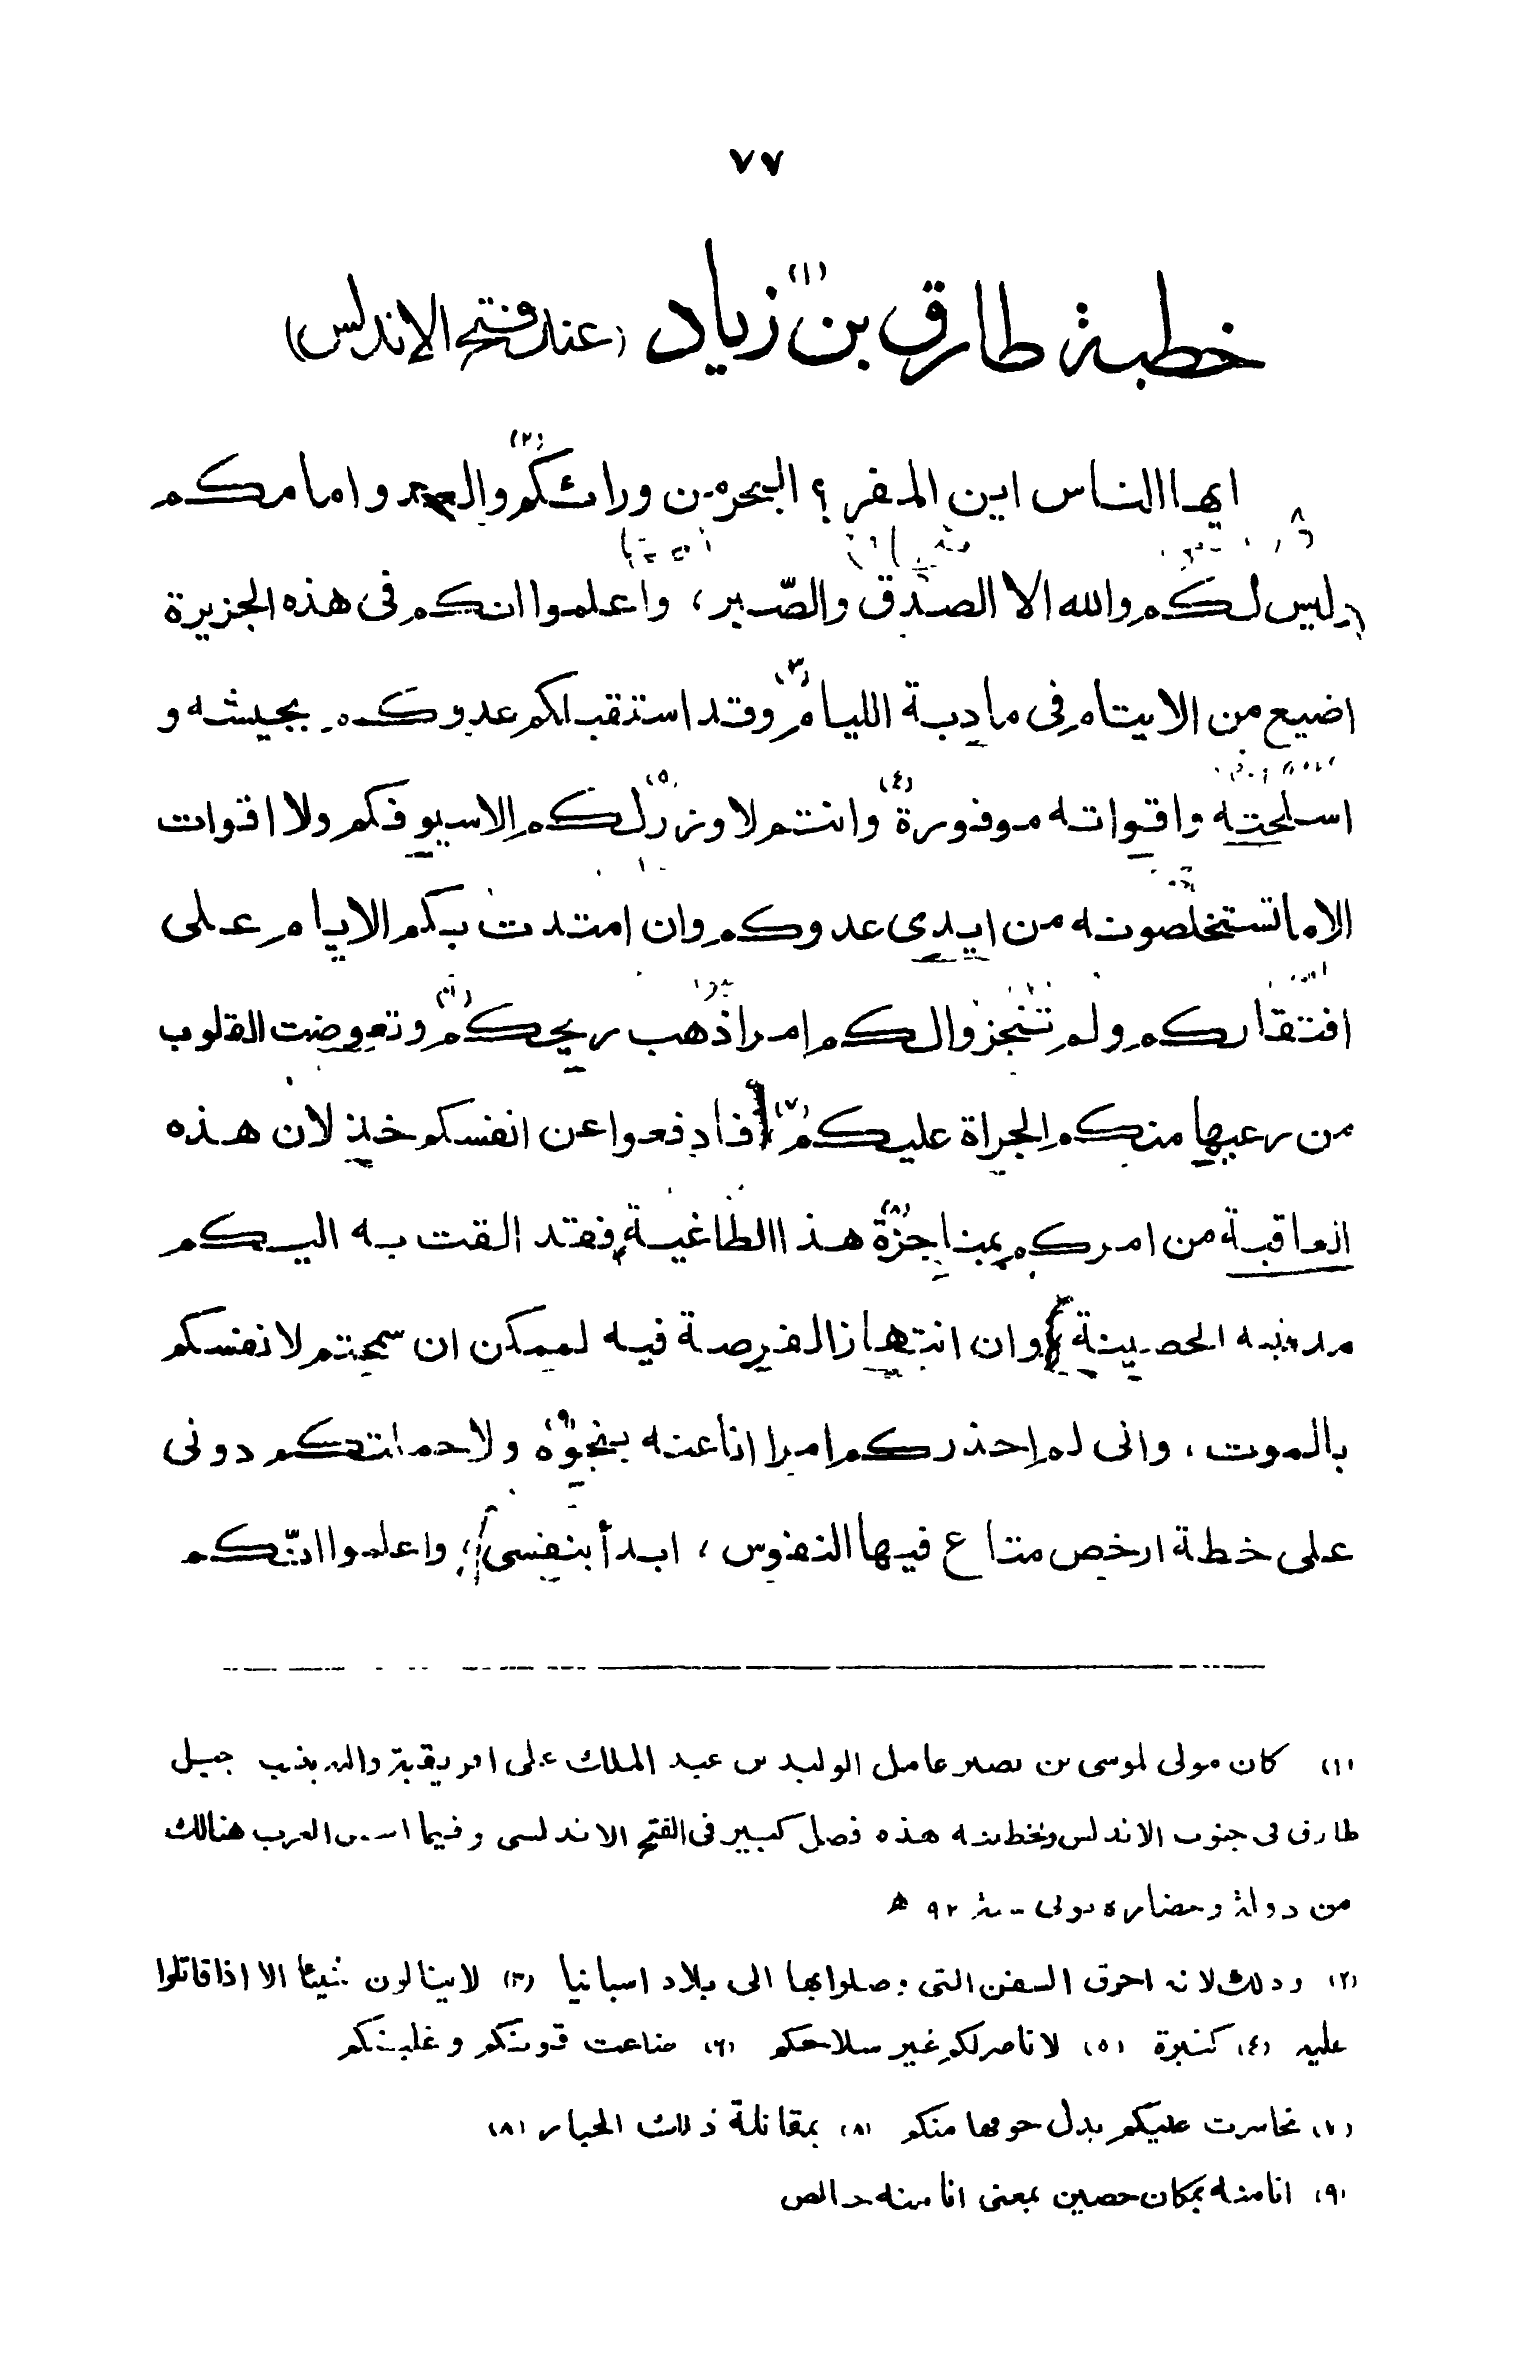 ٧٧
خطبة طارق بن زياد (١) (عند فتح الاندلس)
ايها الناس اين المفر؟ البحر من ورائكم (٢) والعدو امامكم
وليس لكم والله الا الصدق والصّبر، واعلموا انكم فى هذه الجزيرة
اضيع من الايتام فى مادبة الليام (٣) وقد استقبلكم عدوكم بجيشه و
اسلحته واقواته موفورة (٤) وانتم لا وزر (٥) لكم الا سيوفكم ولا اقوات
الا ما تستخلصونه من ايدى عدوكم وان امتدت بكم الايام على
افتقاركم ولم تنجزوا لكم امرا ذهب ريحكم (٦) وتعوضت القلوب
من رعبها منكم الجراة عليكم (٧) فادفعوا عن انفسكم خذلان هذه
العاقبة من امركم بمناجزة (٨) هذا الطاغية فقد القت به اليكم
مدينته الحصينة وان انتهاز الفرصة فيه لممكن ان سمحتم لانفسكم
بالموت، وانى لم احذركم امرا انا عنه بنجوة (٩) ولا حملتكم دونى
على خطة ارخص متاع فيها النفوس، ابدأ بنفسى، واعلموا انّكم
(١) كان مولى لموسى بن نصير عامل الوليد بن عبد الملك على افريقية واليه ينسب جبل
طارق فى جنوب الاندلس ولخطبته هذه فضل كبير فى الفتح الاندلسى وفيما اسس العرب هنالك
من دولة وحضارة توفى سنة ٩٢ ه
(٢) وذلك لانه احرق السفن التى وصلوا بها الى بلاد اسبانيا (٣) لا ينالون شيئا الا اذا قاتلوا
عليه (٤) كثيرة (٥) لا ناصر لكم غير سلاحكم (٦) ضاعت قوتكم وغلبتكم
(٧) تجاسرت عليكم بدل خوفها منكم (٨) بمقاتلة ذلك الجبار (٨)
(٩) انا منه بمكان حصين بمعنى انا منه خالص